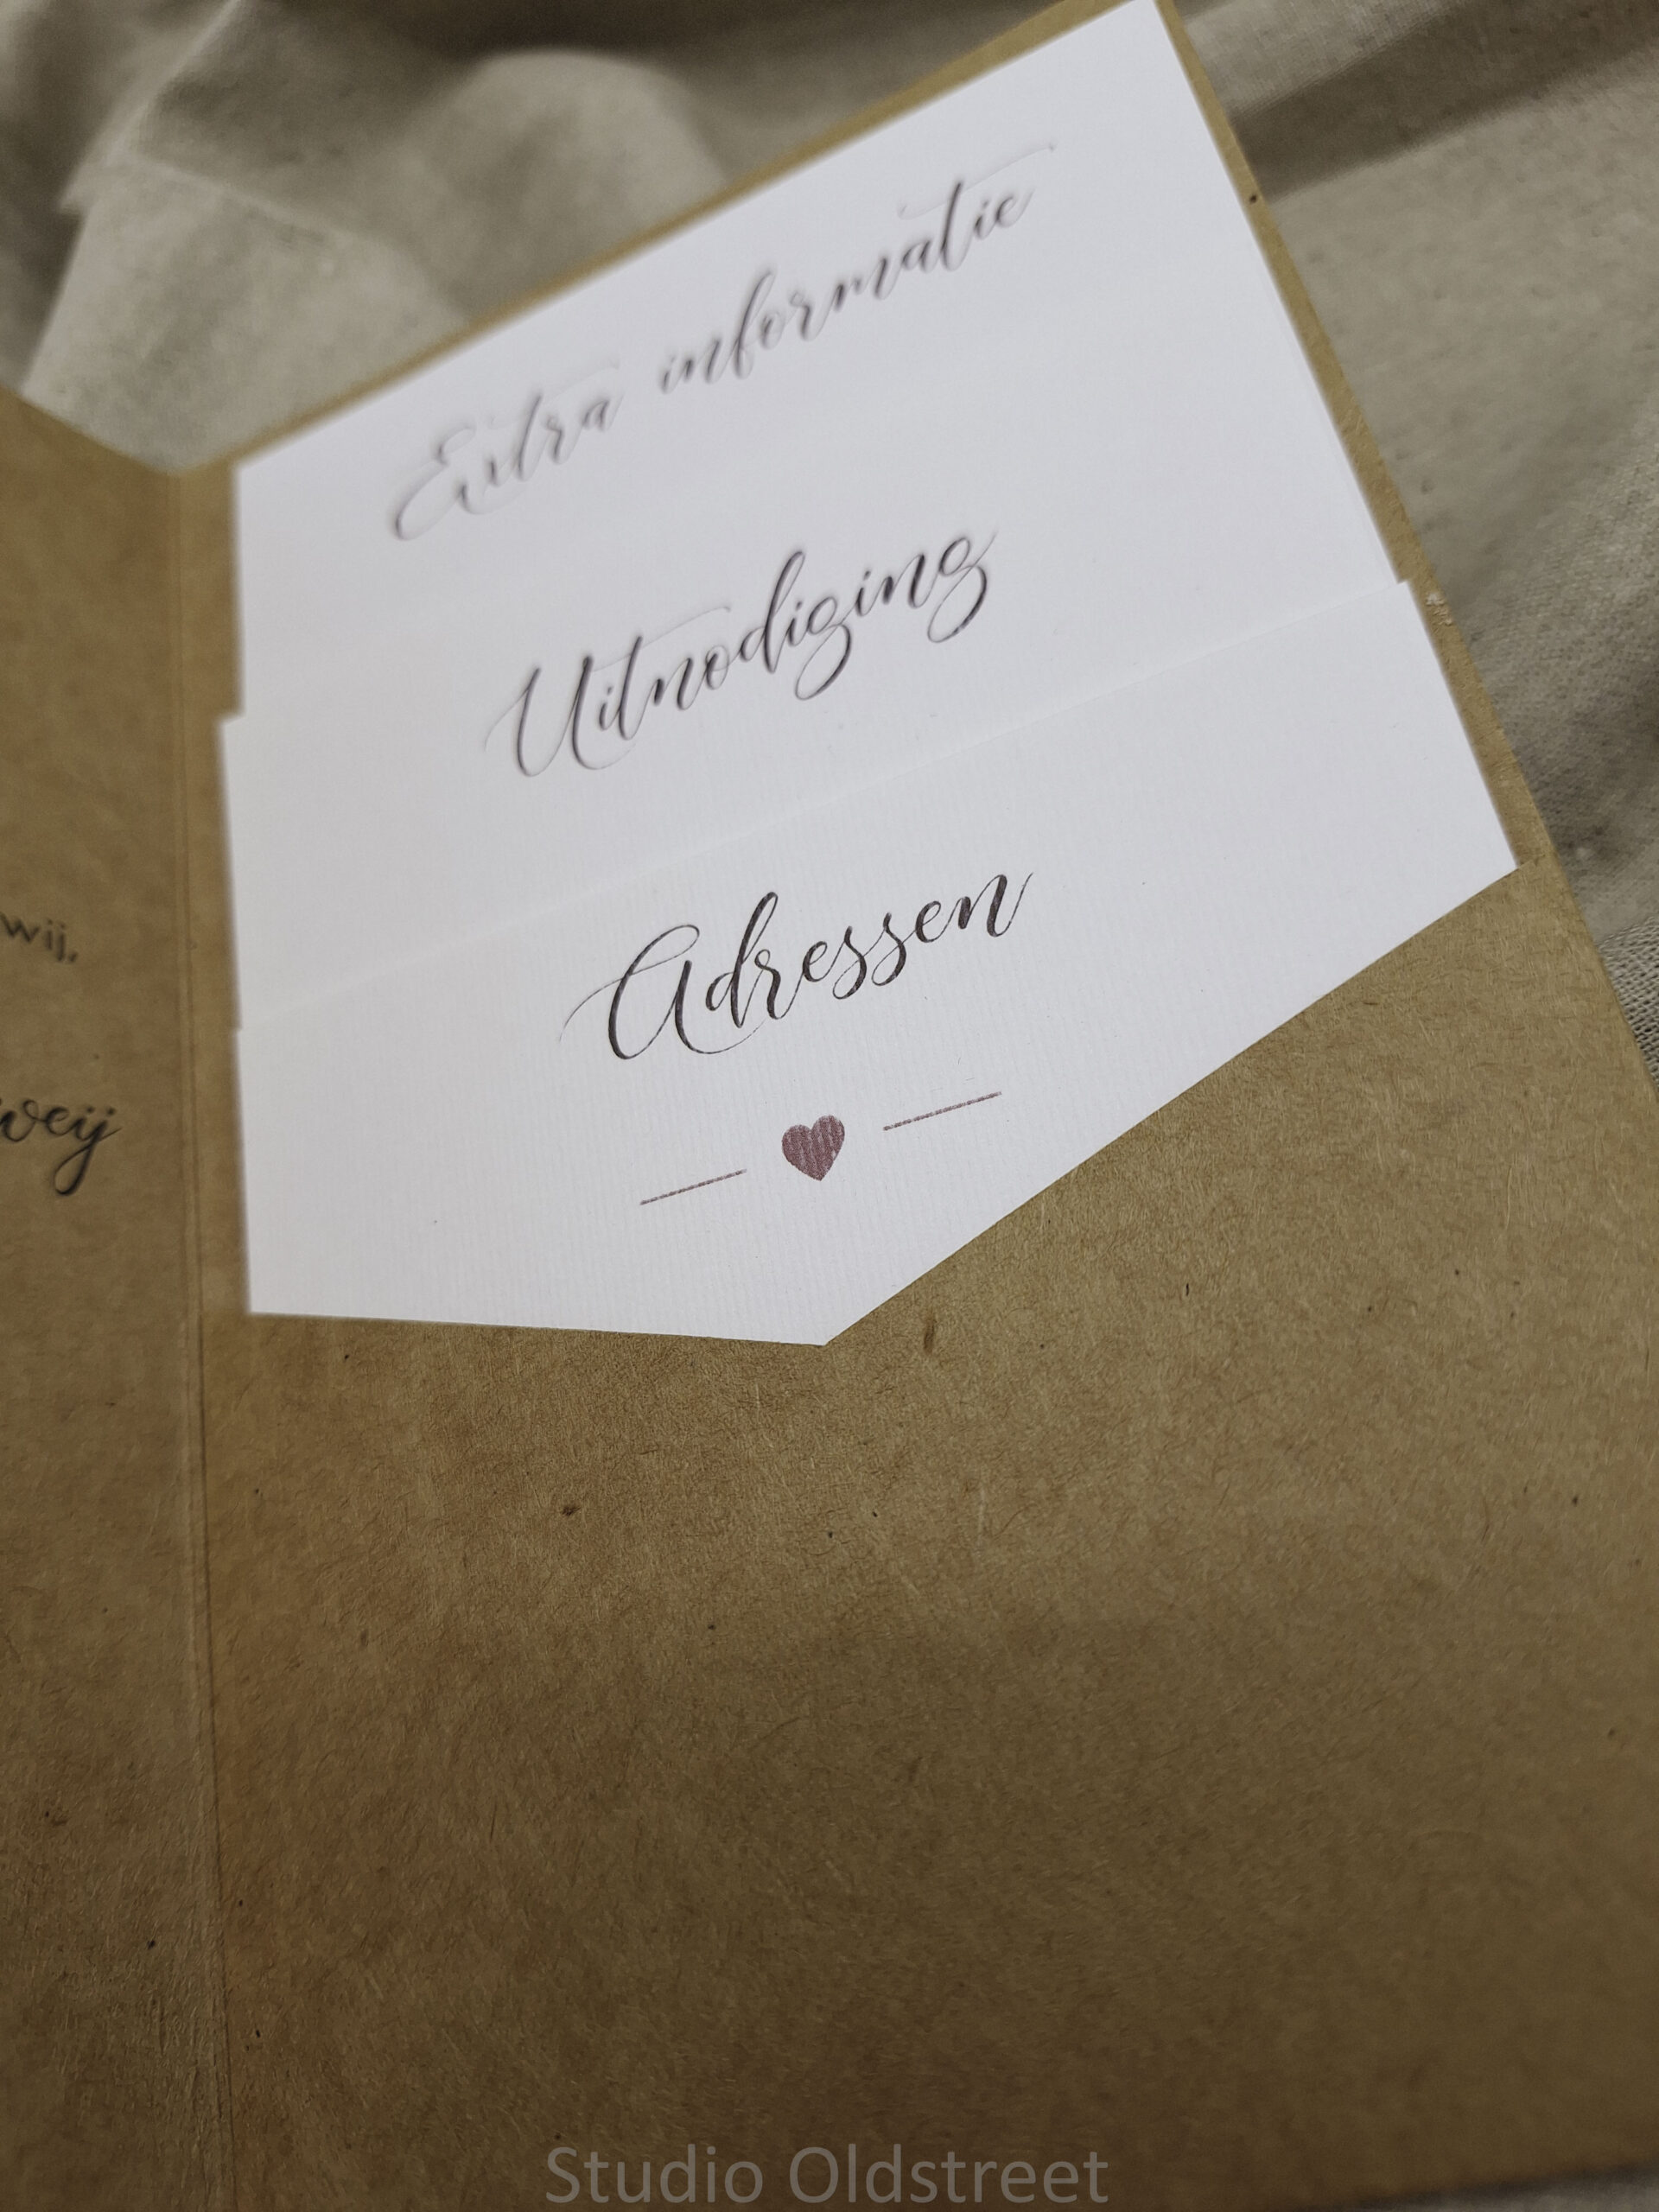 Extra informatie
Uitnodiging
Adressen
wij,
Studio Oldstreet